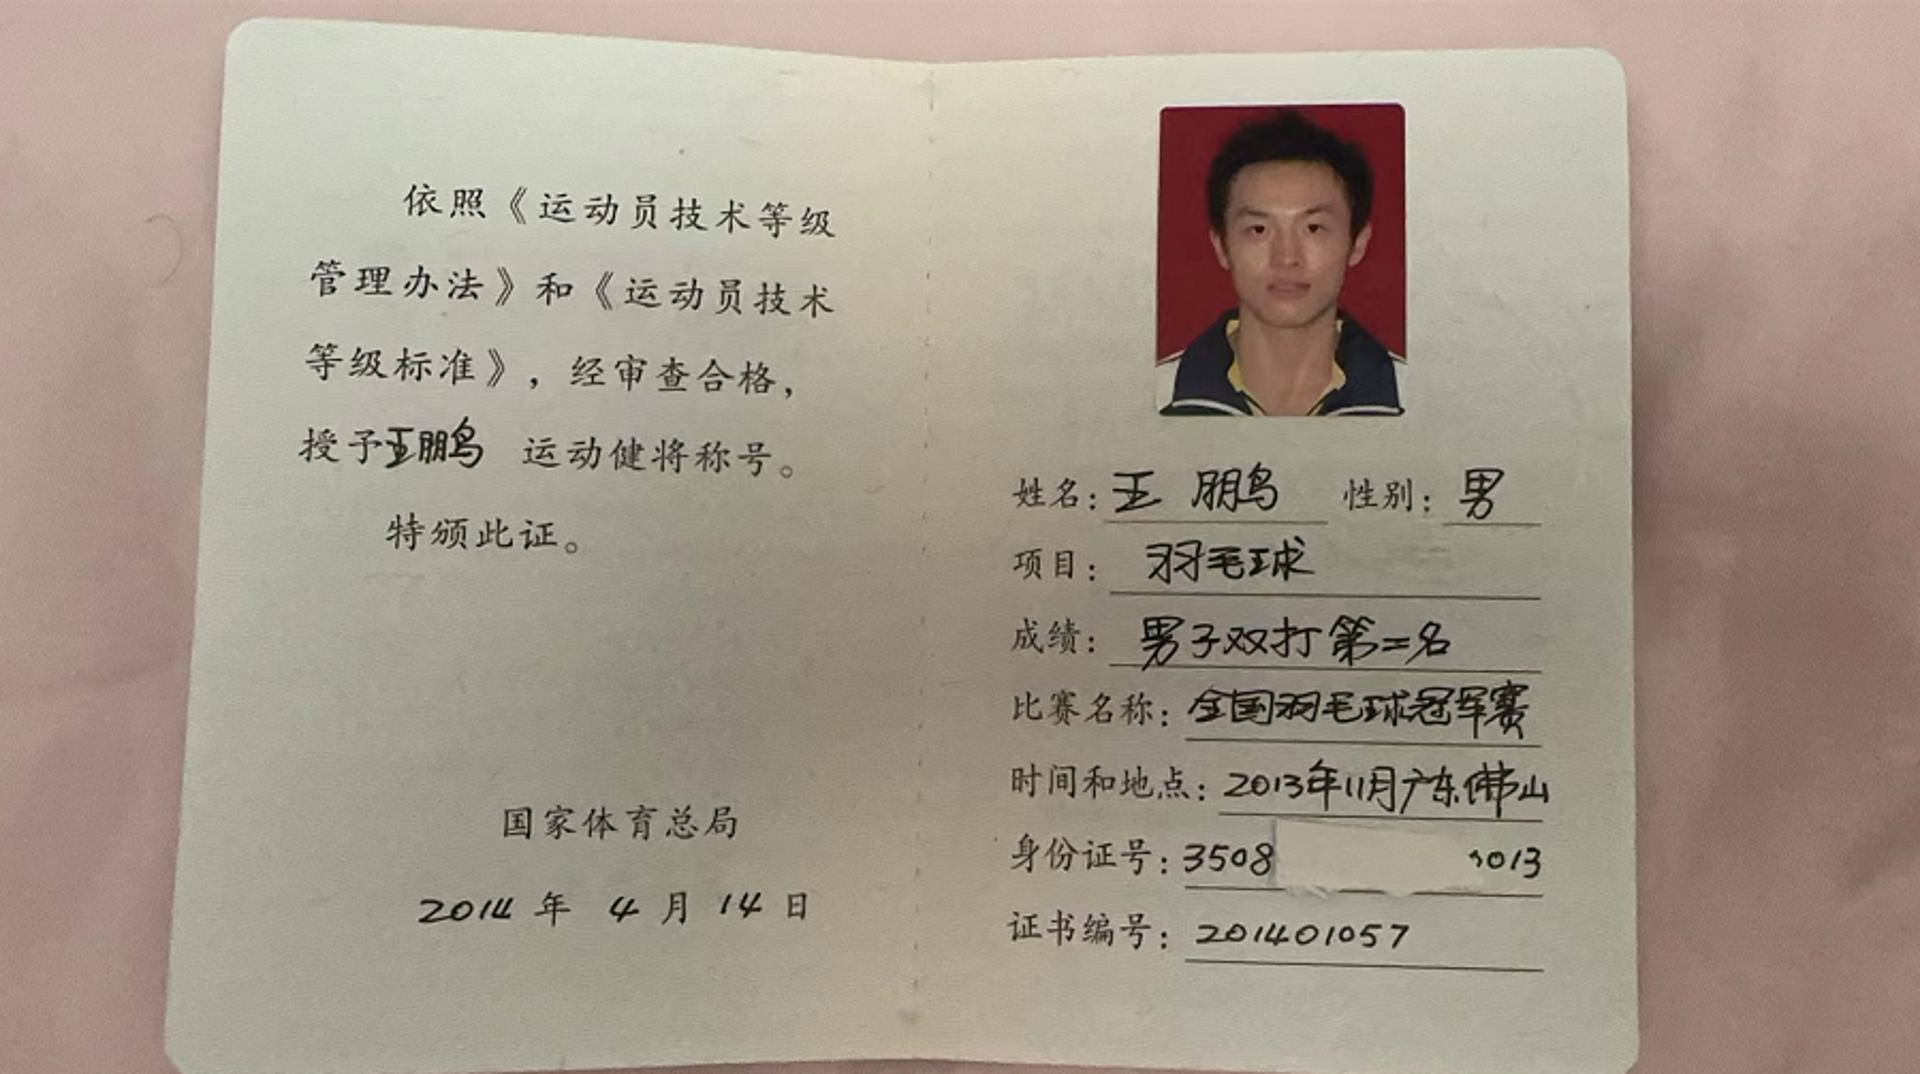 依照《运动员技术等级
管理办法》和《运动员技术
等级标准》，经审查合格，
授予王鹏 运动健将称号。
特颁此证。
国家体育总局
2014 年 4 月 14 日
姓名：王 鹏 性别：男
项目：羽毛球
成绩：男子双打第二名
比赛名称：全国羽毛球冠军赛
时间和地点：2013年11月广东佛山
身份证号：3508 013
证书编号：201401057